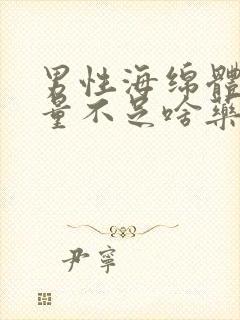 男性海绵體
量不足啥藥
尹寧